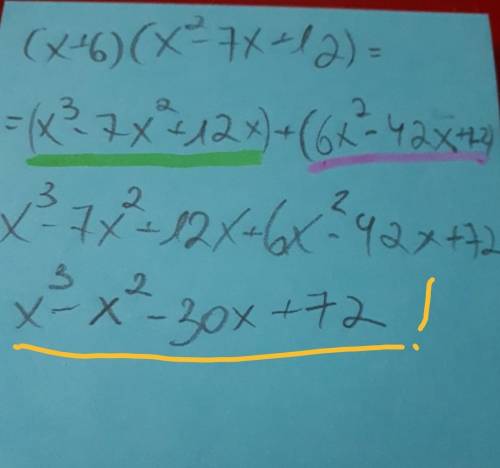 (x+6)(x²-7x+12)=
=(x³-7x²+12x)+(6x²-42x+72)
x³-7x²+12x+6x²-42x+72
x³-x²-30x+72 !